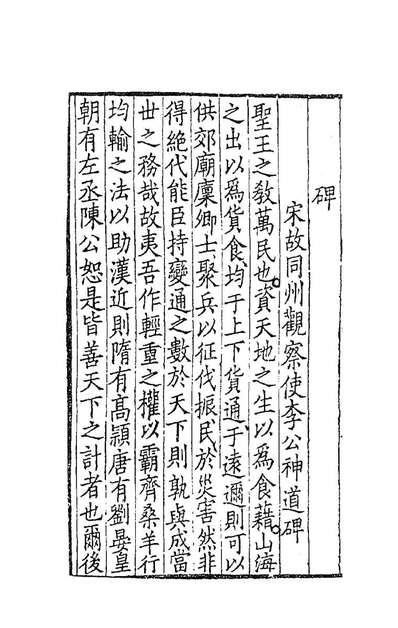 碑
宋故同州觀察使李公神道碑
聖王之敎萬民也資天地之生以為食藉山海
之出以為貨食均于上下貨通于遠邇則可以
供郊廟廩卿士聚兵以征伐振民於災害然非
得絶代能臣持變通之數於天下則孰與成當
世之務哉故夷吾作輕重之權以霸齊桑羊行
均輸之法以助漢近則隋有高熲唐有劉晏皇
朝有左丞陳公恕是皆善天下之計者也爾後